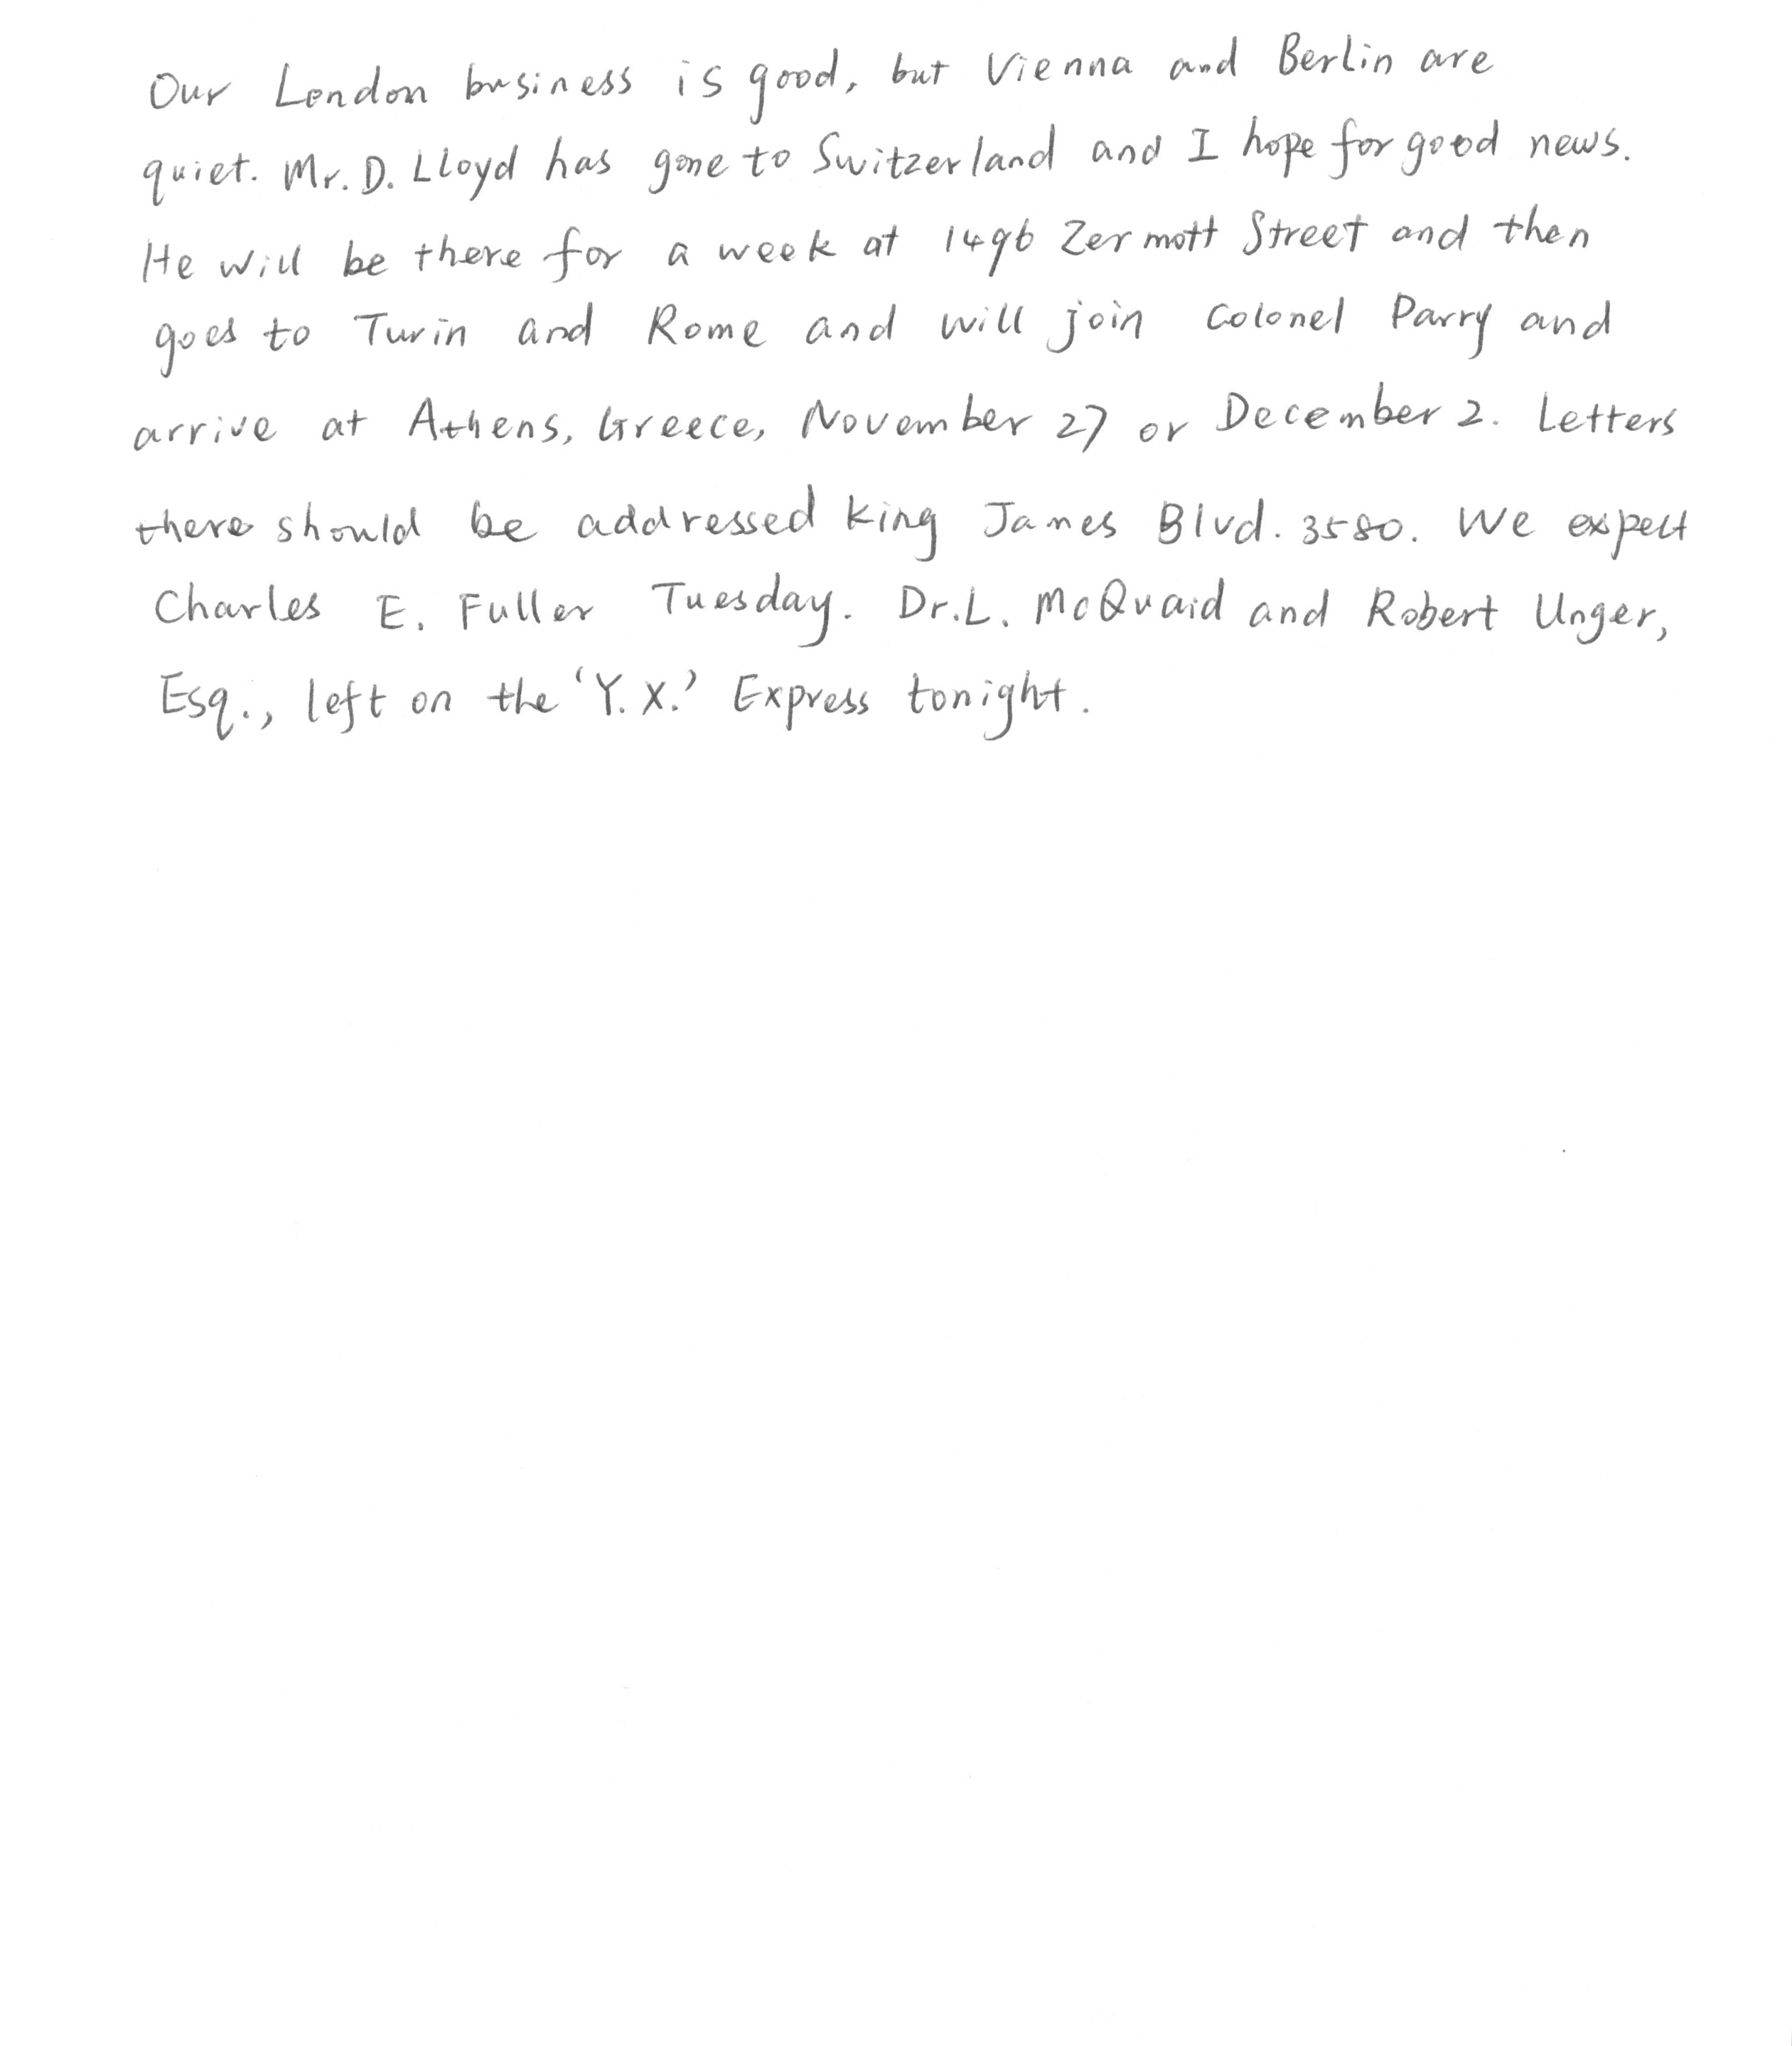 Our London business is good, but Vienna and Berlin are
quiet. Mr. D. Lloyd has gone to Switzerland and I hope for good news.
He will be there for a week at 1496 Zermott Street and then
goes to Turin and Rome and will join Colonel Parry and
arrive at Athens, Greece, November 27 or December 2. Letters
there should be addressed King James Blvd. 3580. We expect
Charles E. Fuller Tuesday. Dr. L. McQuaid and Robert Unger,
Esq., left on the 'Y.X.' Express tonight.